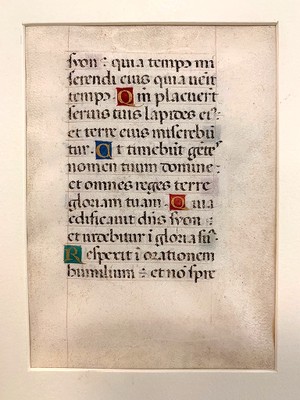 syon : quia tempꝰ mi
serendi eius quia uenit
tempꝰ. Qm̄ placuerūt
seruis tuis lapides eiꝰ:
et terre eius misereb̄ū
tur. Et timebūt gētes
nomen tuum domine:
et omnes reges terre
gloriam tuam. Quia
edificauit dn̄s syon:
et uidebitur ī gloria sua.
Respexit ī orationem
humilium : et nō spre